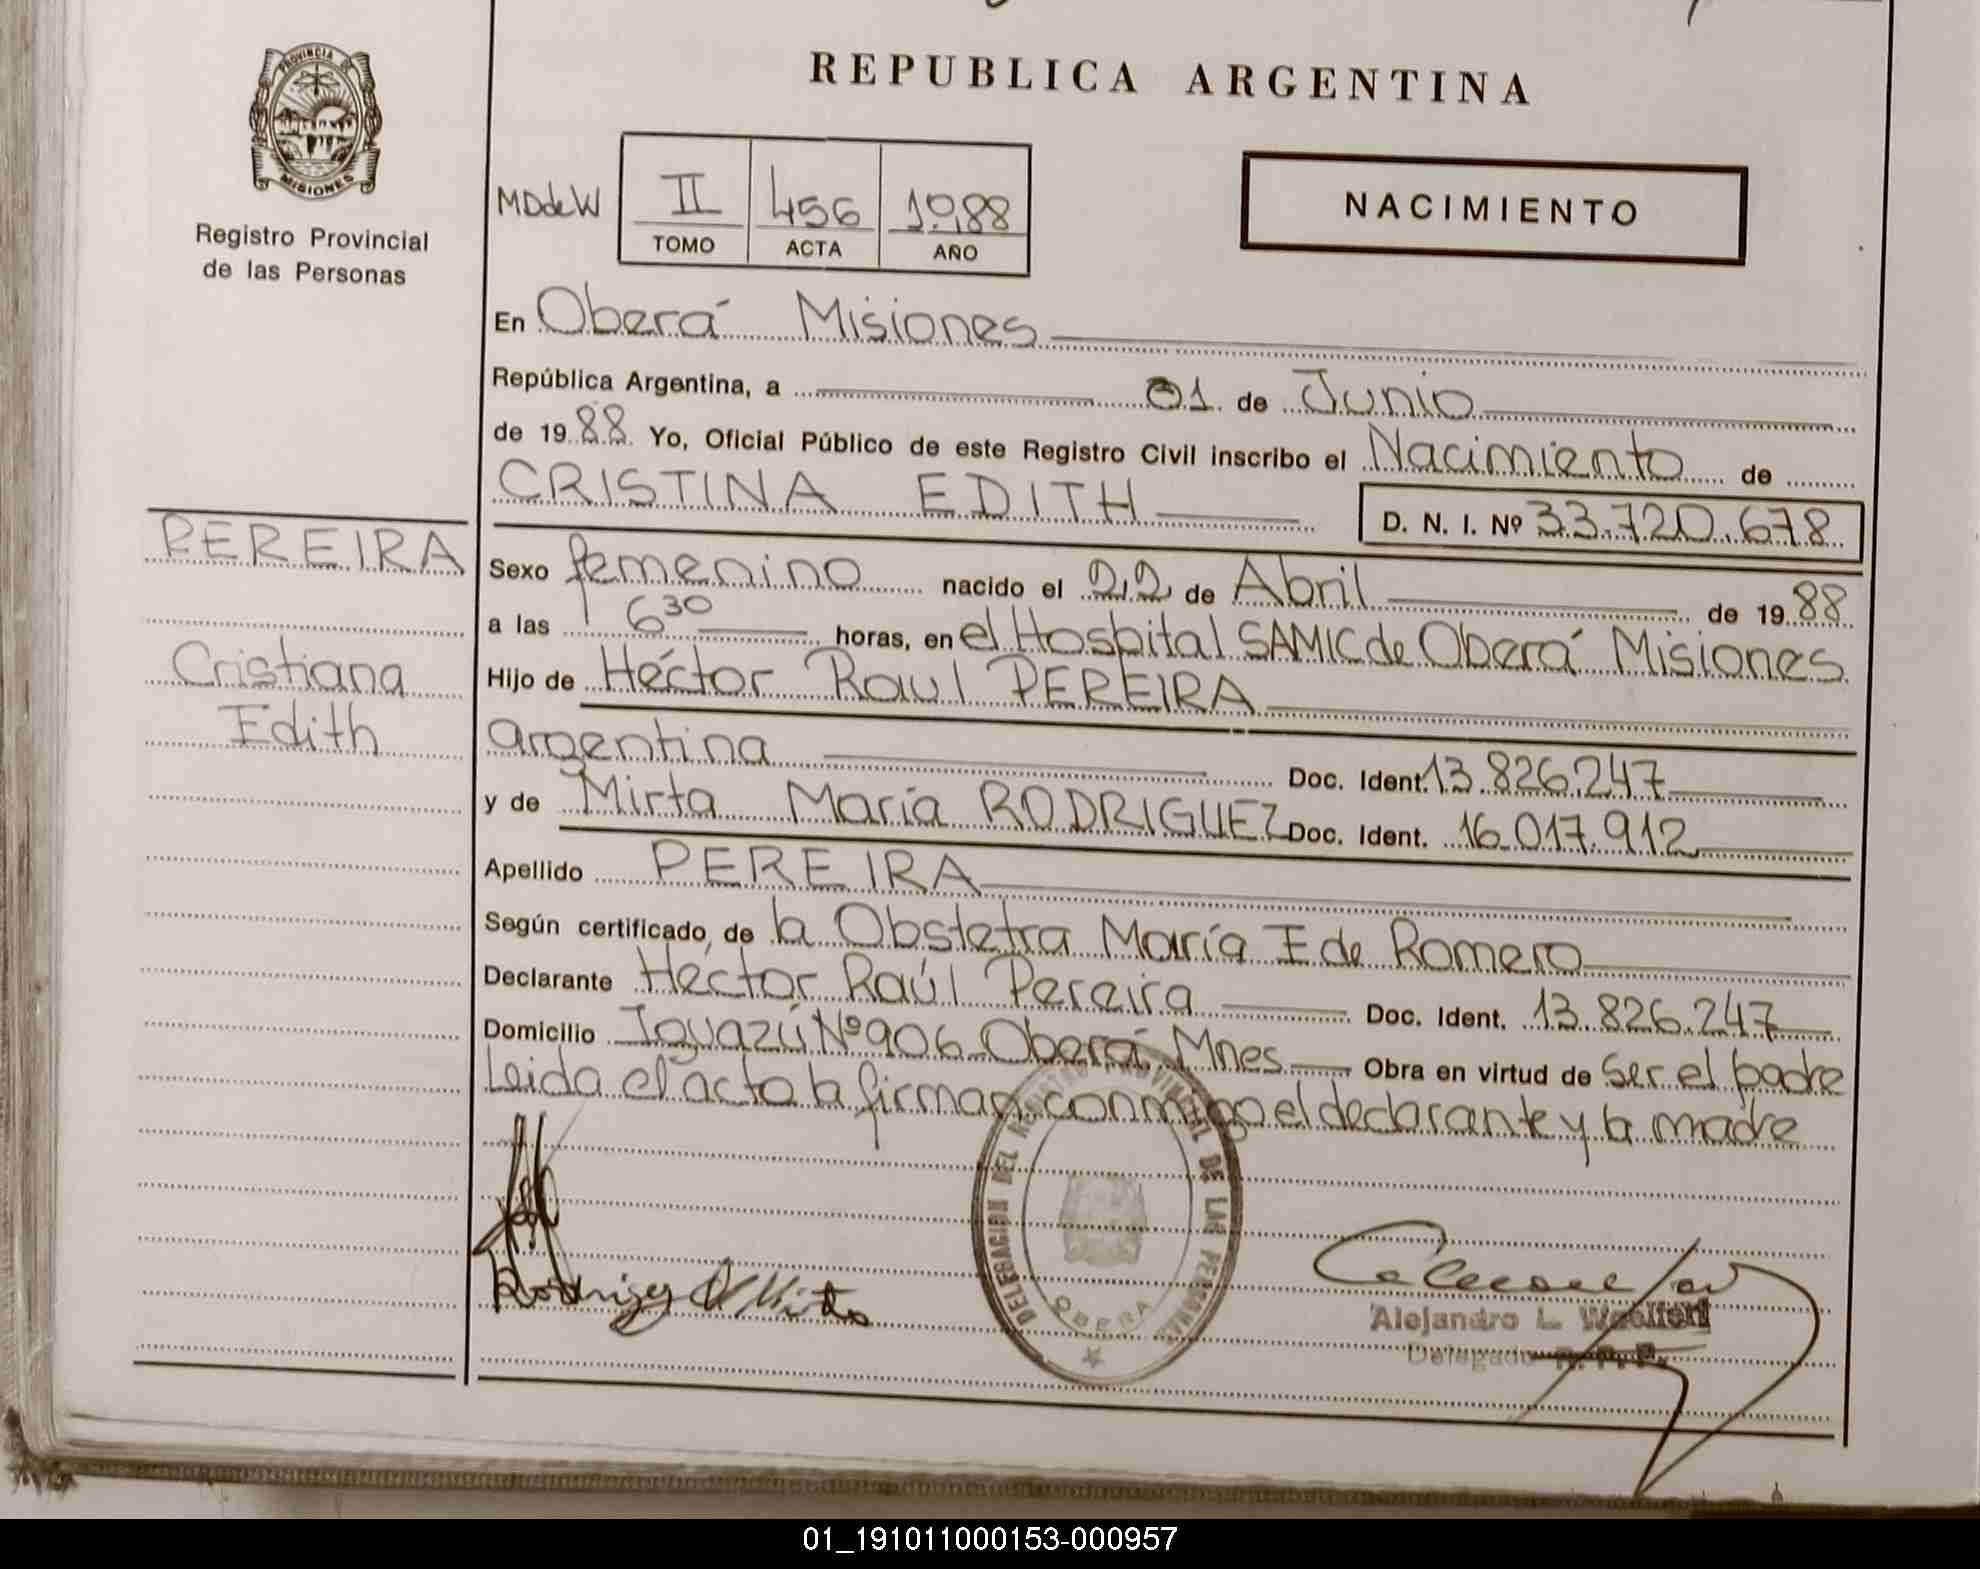 REPUBLICA ARGENTINA
PROVINCIA DE
MISIONES
Registro Provincial
de las Personas
MDdeW
II 456 1988
TOMO ACTA AÑO
NACIMIENTO
En Oberá Misiones
República Argentina, a 01 de Junio
de 1988 Yo, Oficial Público de este Registro Civil inscribo el Nacimiento de
CRISTINA EDITH D. N. I. Nº 33.720.678
PEREIRA
Cristiana
Edith
Sexo femenino nacido el 22 de Abril de 1988
a las 6 30 horas, en el Hospital SAMIC de Oberá Misiones
Hijo de Héctor Raul PEREIRA
argentina Doc. Ident. 13.826.247
y de Mirta María RODRIGUEZ Doc. Ident. 16.017.912
Apellido PEREIRA
Según certificado de la Obstetra María E de Romero
Declarante Héctor Raúl Pereira Doc. Ident. 13.826.247
Domicilio Iguazú Nº 906 Oberá Mnes Obra en virtud de ser el padre
Leida el acta la firman conmigo el declarante y la madre
DELEGACION DEL REGISTRO PROVINCIAL DE LAS PERSONAS
OBERA
Alejandro L.
Delegado R. P. P.
01_191011000153-000957